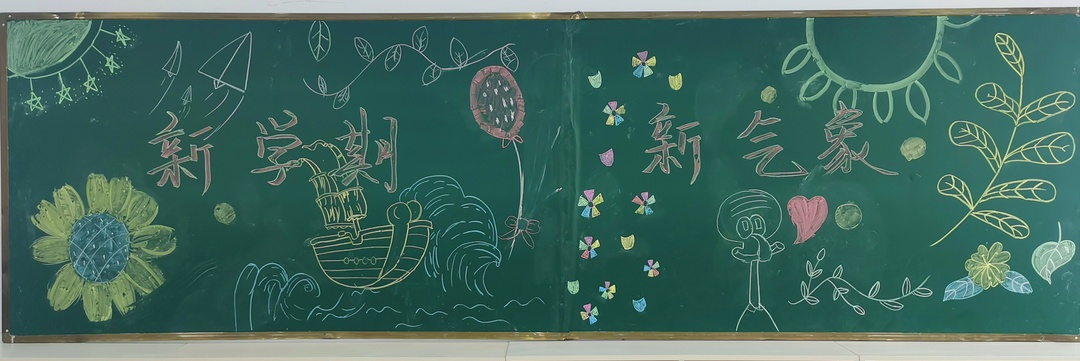 新学期 新气象